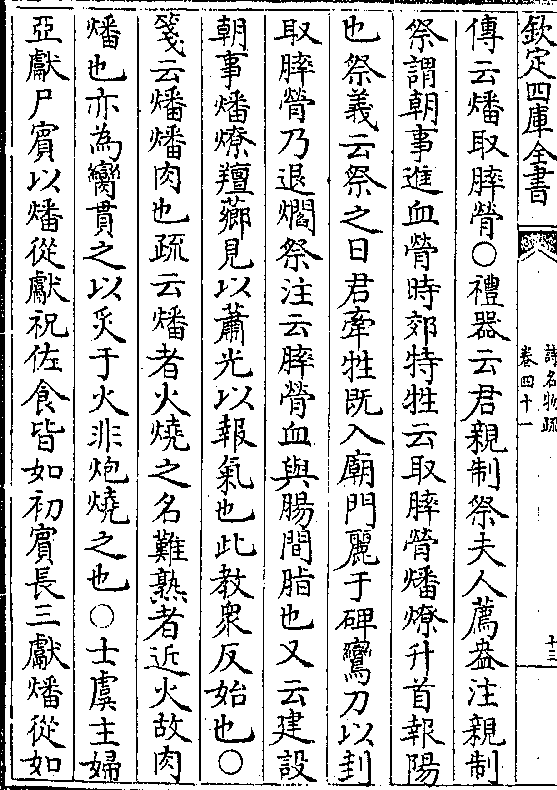 欽定四庫全書
詩名物疏
卷四十一
十三
傳云燔取膟膋○禮器云君親制祭夫人薦盎注親制
祭謂朝事進血膋時郊特牲云取膟膋燔燎升首報陽
也祭義云祭之日君牽牲既入廟門麗于碑鸞刀以刲
取膟膋乃退爓祭注云膟膋血與腸間脂也又云建設
朝事燔燎羶薌見以蕭光以報氣也此教衆反始也○
箋云燔燔肉也疏云燔者火燒之名難熟者近火故肉
燔也亦為臠貫之以炙于火非炮燒之也○士虞主婦
亞獻尸賓以燔從獻祝佐食皆如初賓長三獻燔從如